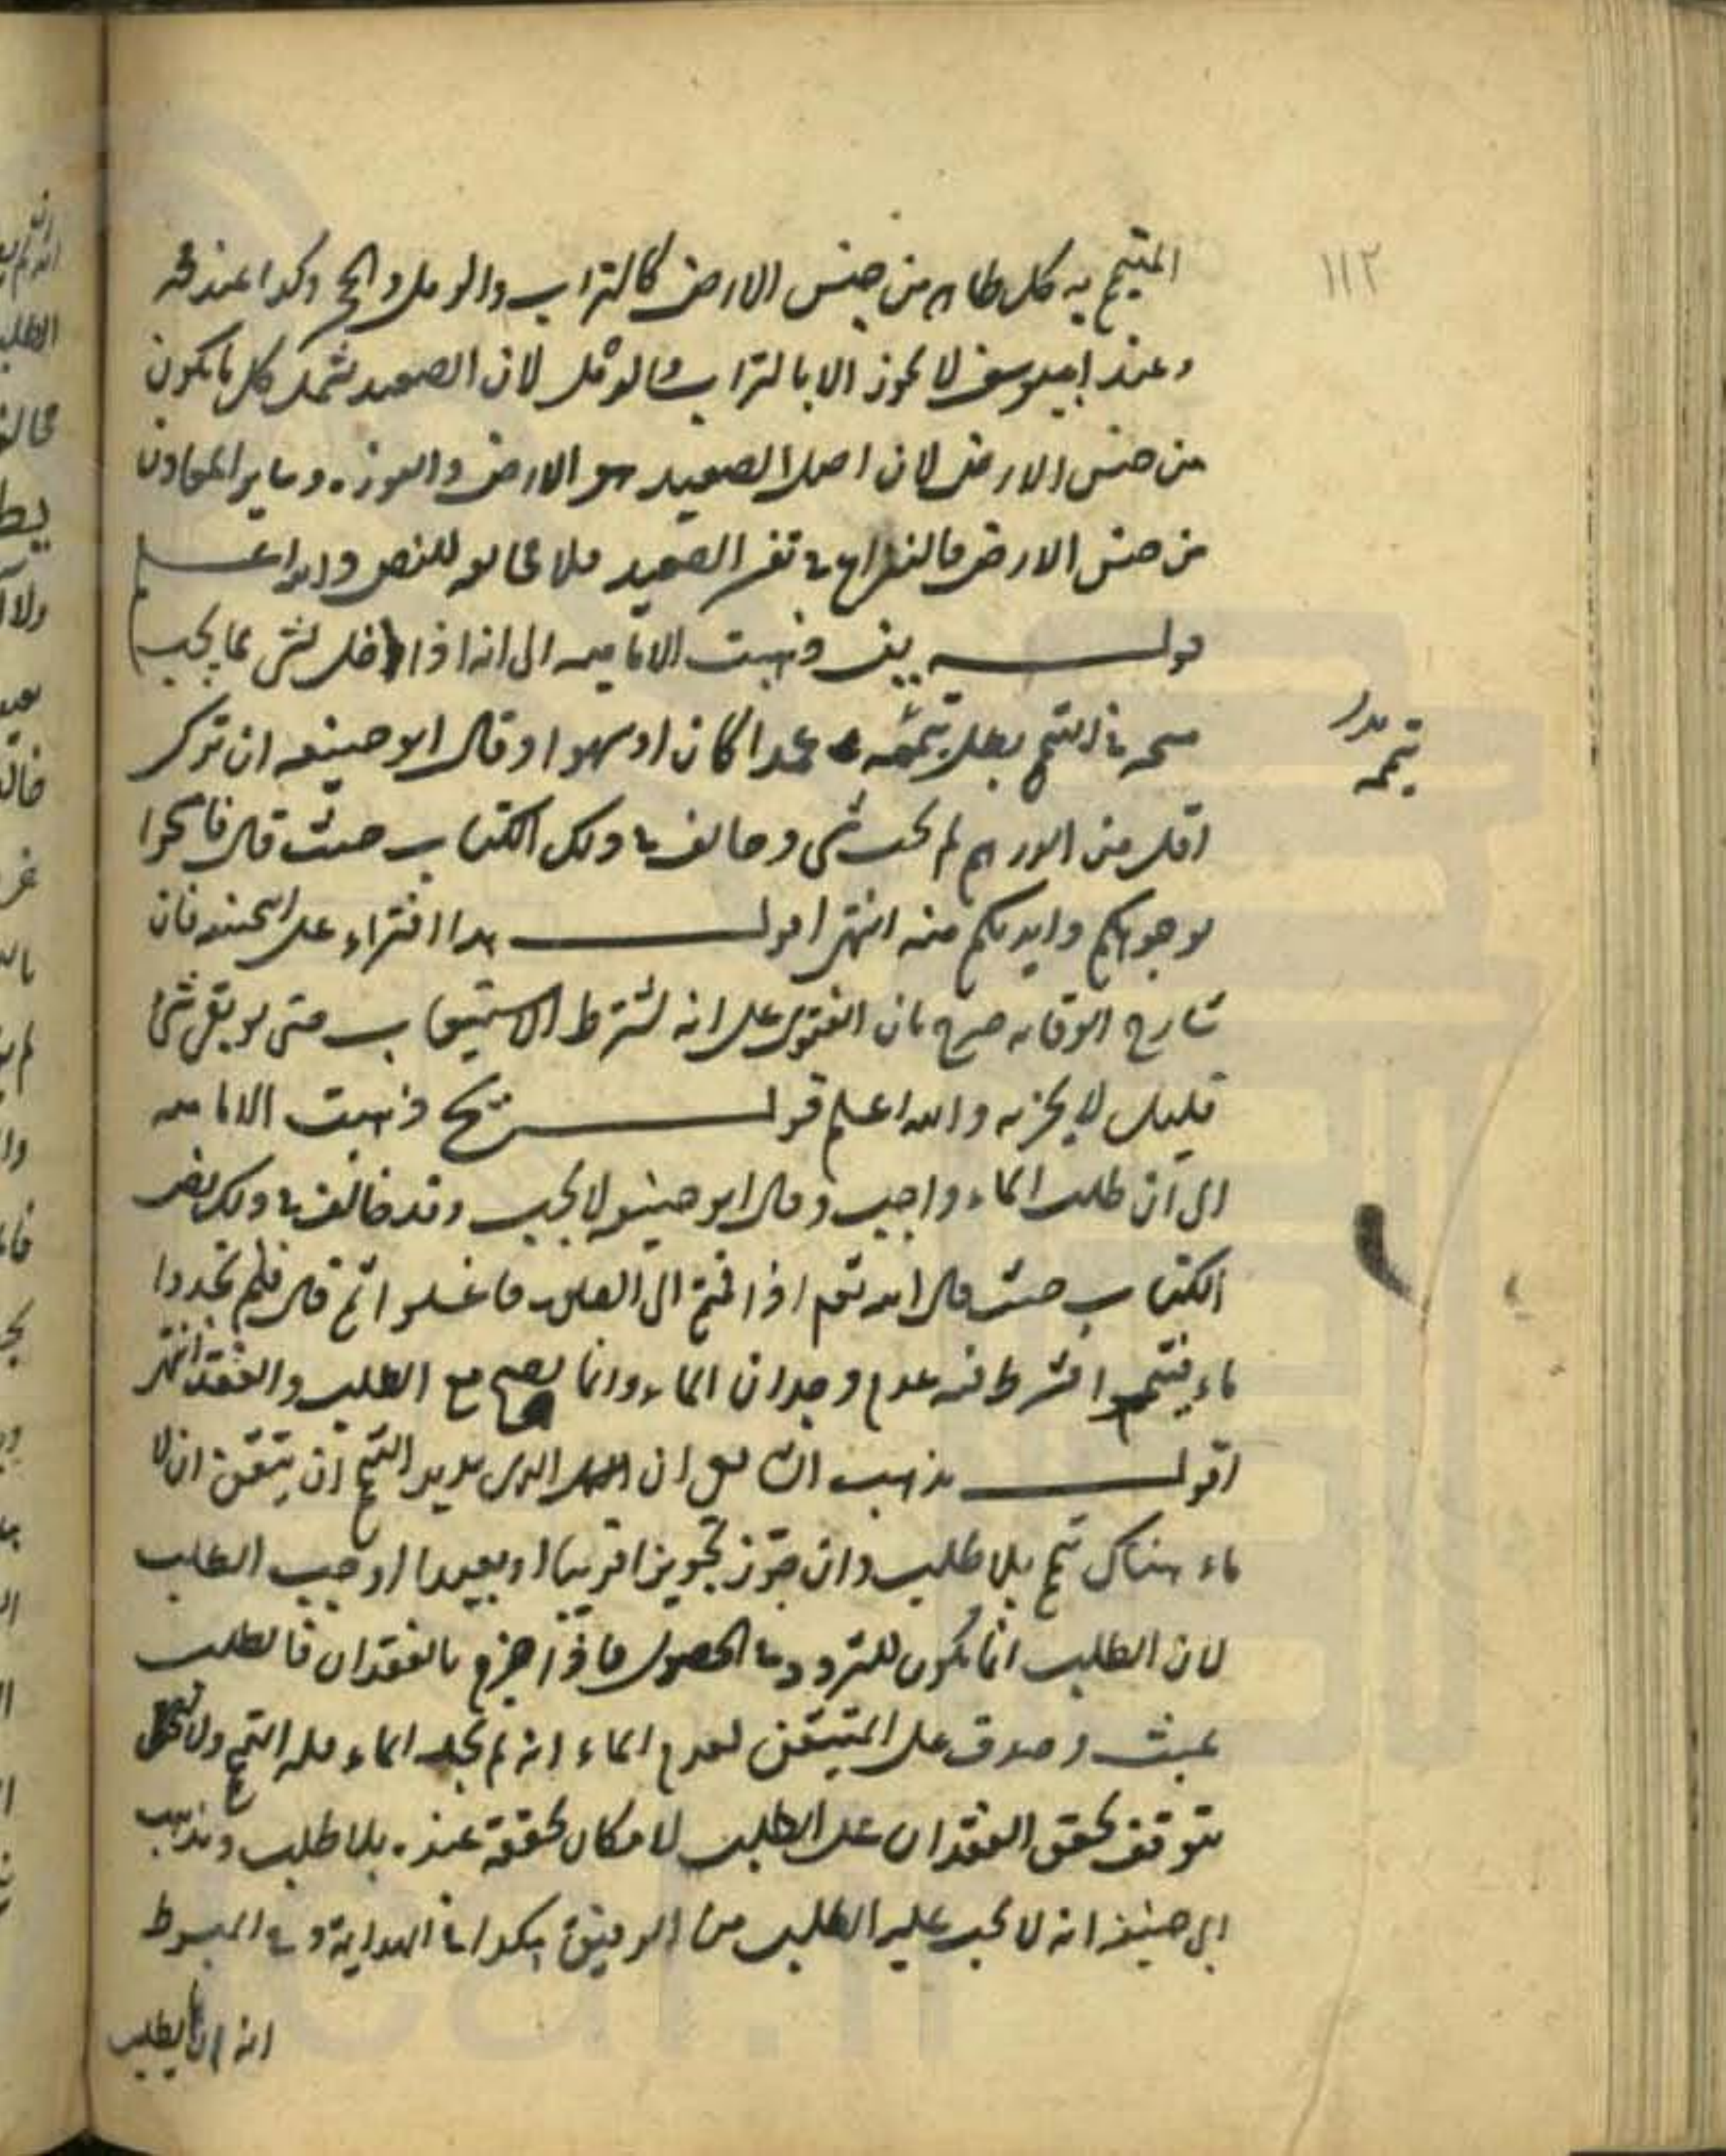 ١١٢
المتيمم به كل طاهر من جنس الارض كالتراب والرمل والحجر وكذا عند
وعند ابيوسف لا يجوز الا بالتراب والرمل لان الصعيد يشمل كل ما يكون
من جنس الارض لان اصل الصعيد هو الارض والنورة وساير المعادن
من جنس الارض فالنزاع في تفسير الصعيد فلا مخالفة للنص والله اعلم
قوله يف وذهبت الاماميه الى انه اذا اخل بشئ مما يجب
مسحه في التيمم بطل تيممه عمدا كان او سهوا وقال ابو حنيفه ان ترك
تيممه بدل
اقل من الدرهم لم يجب شئ وخالف في ذلك الكتاب حيث قال فامسحوا
بوجوهكم وايديكم منه انتهى اقول هذا افتراء على ابيحنيفه فان
شارح الوقايه صرح بان الفتوى على انه يشترط الاستيعاب حتى لو بقى شئ
قليل لا يجزيه والله اعلم قوله يح وذهبت الاماميه
الى ان طلب الماء واجب وقال ابو حنيفه لا يجب وقد خالف في ذلك نص
الكتاب حيث قال الله تعم اذا قمتم الى الصلوة فاغسلوا ثم قال فلم تجدوا
ماء فتيمموا فشرط فيه عدم وجدان الماء وانما يصح مع الطلب والفقد انتهى
اقول مذهب الشافعى ان الذى يريد التيمم ان يتيقن ان لا
ماء هناك تيمم بلا طلب وان جوز تجويزا قريبا او بعيدا اوجب الطلب
لان الطلب انما يكون للتردد في الحصول فاذا جزم بالفقدان فالطلب
عبث وصدق على المتيقن لعدم الماء انه لم يجد الماء فله التيمم ولا
يتوقف تحقق الفقدان على الطلب لامكان تحققه عنده بلا طلب ومذهب
ابى حنيفه انه لا يجب عليه الطلب من الرفيق هكذا في الهداية وفي المبسوط
انه ان يطلب